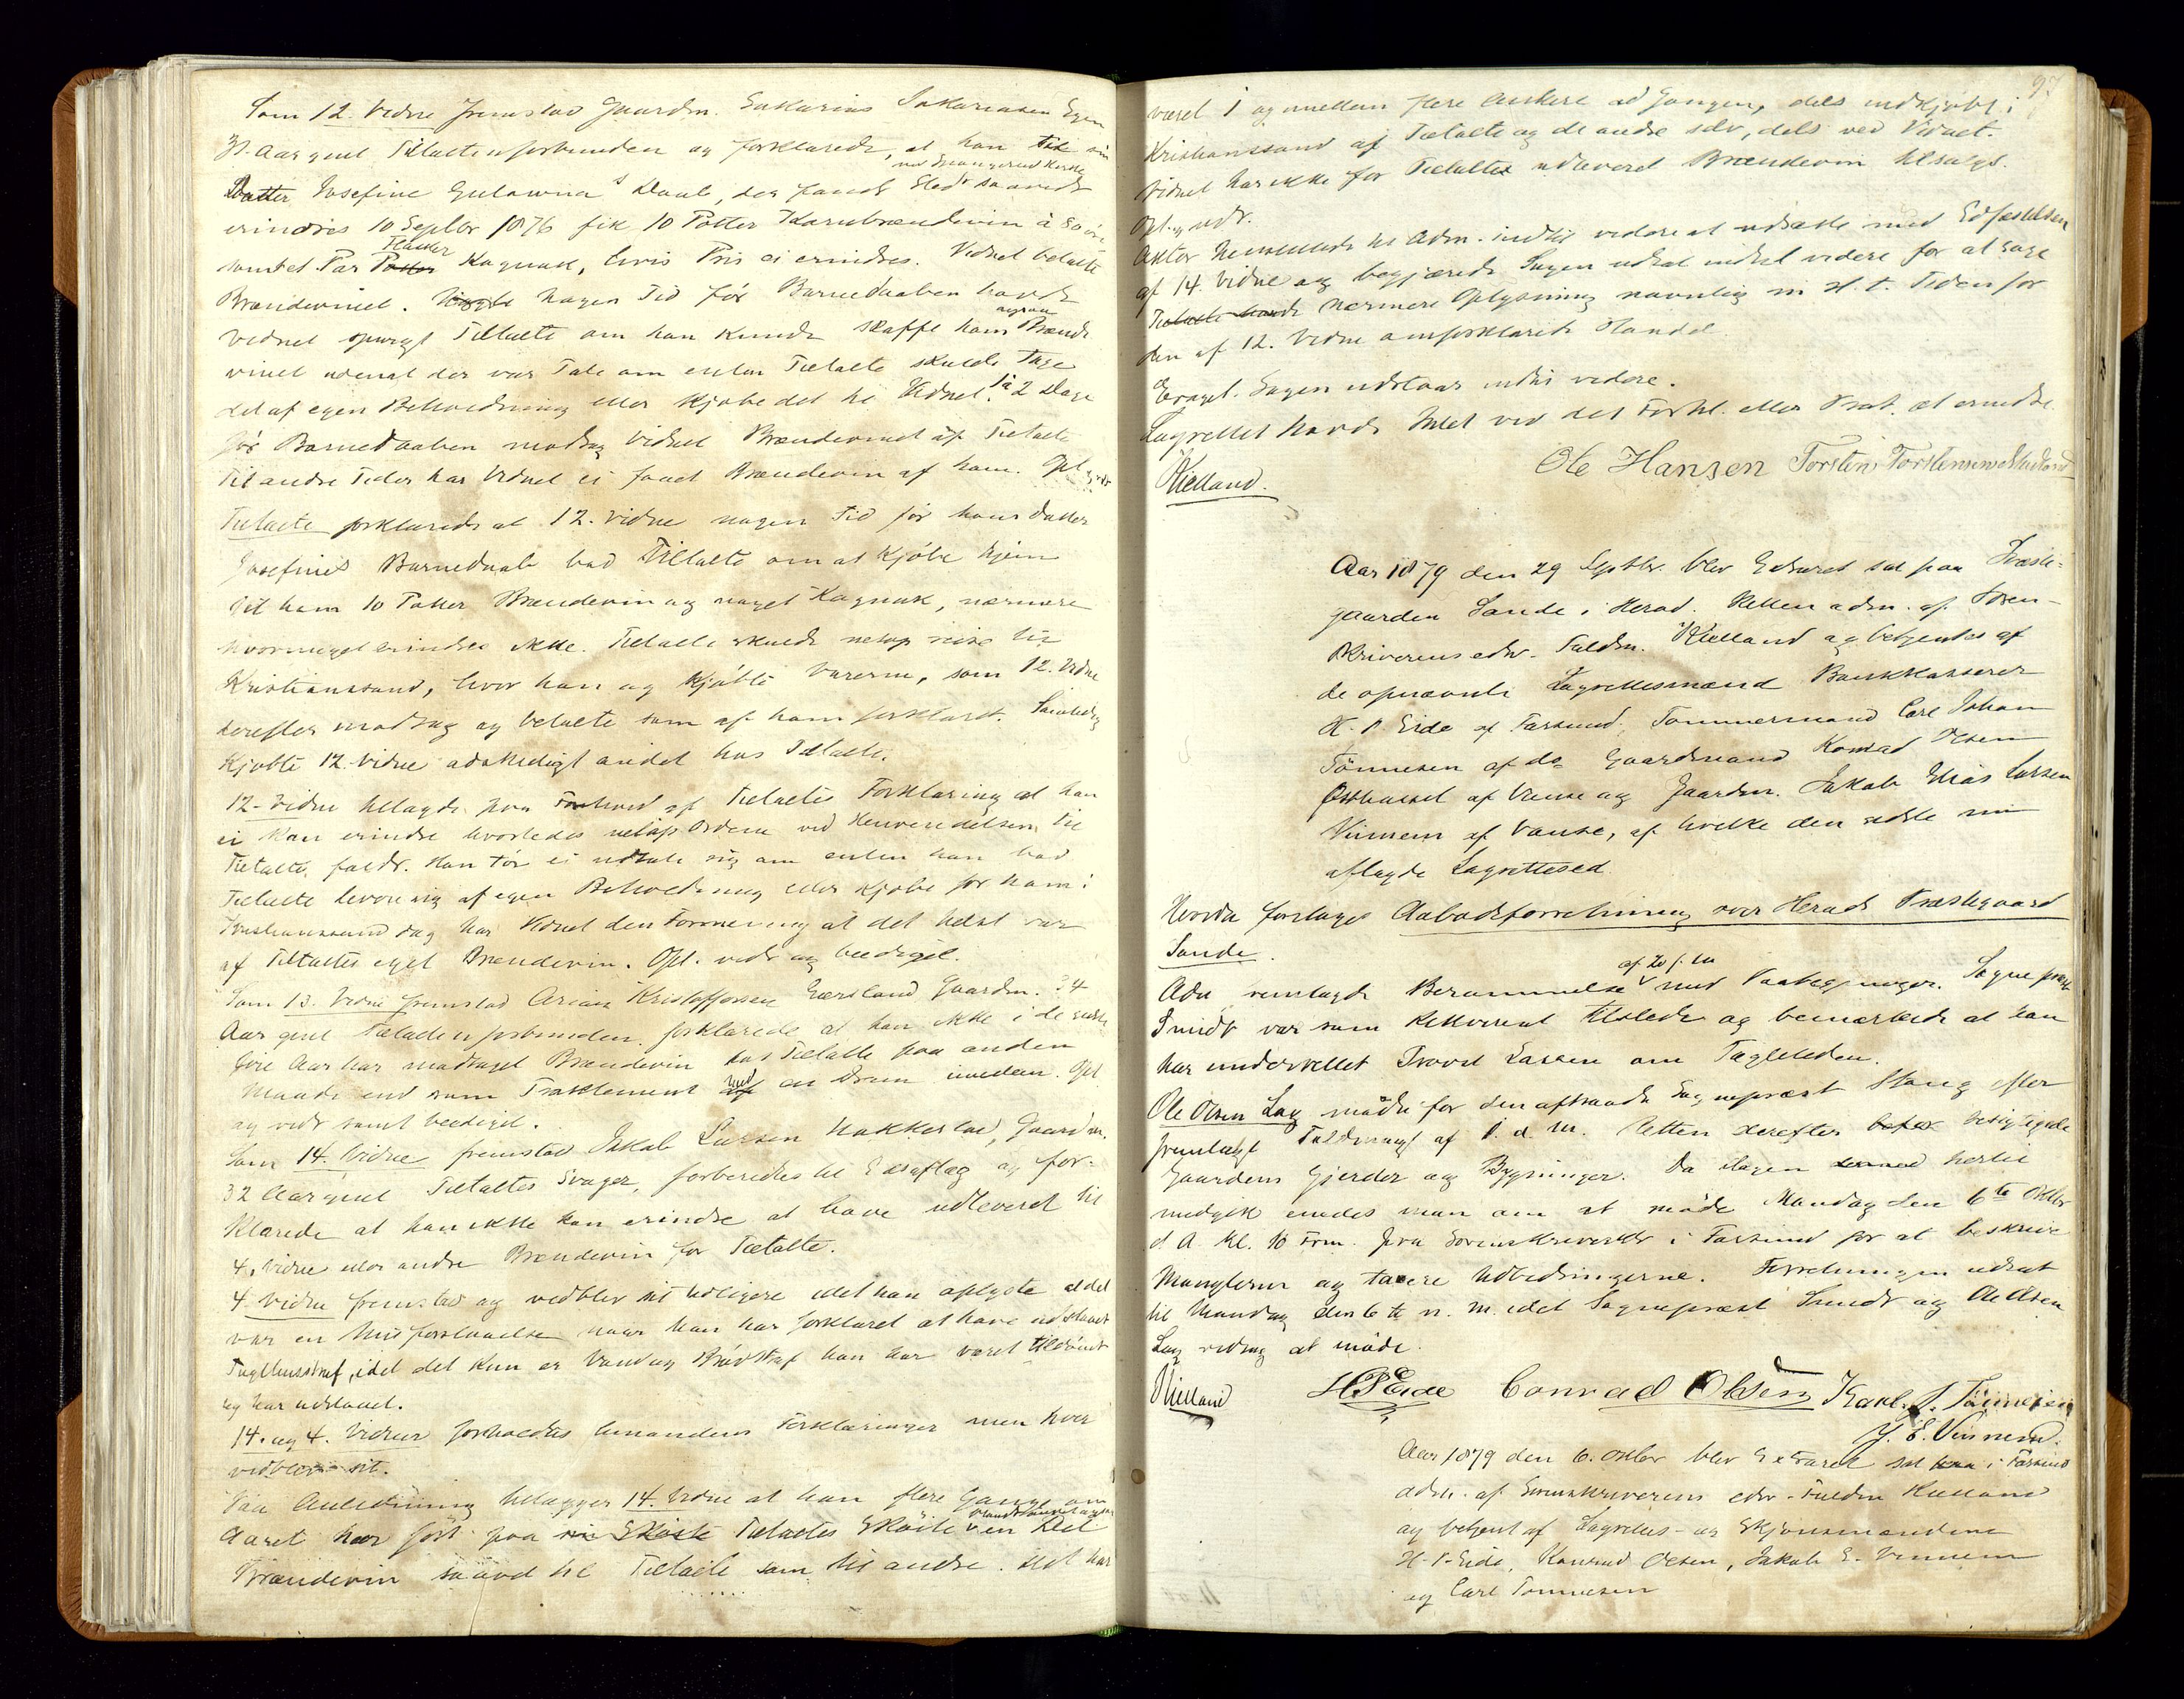 Som 12. Vidne fremstod Gaardm. Sakarias Sakariasen Egen
31 Aar gml Tiltalte uforbunden og forklarede, at han til sin
ved Spangereid Kirke
Datter Josefine Gulowna's Daab, der fandt Sted saavidt
erindres 10 Septbr 1876 fik 10 Potter Kornbrændevin à 80 øre
Flasker
samt et Par Potter Kognak, hvis Pris ei erindres. Vidnet betalte
Brændevinet. Nogle nogen Tid før Barnedaaben havde
Vidnet spurgt Tiltalte om han kunde skaffe ham Brænde
vinet uden at der var Tale om enten Tiltalte skulde tage
det af egen Beholdning eller kjøbe det til Vidnet. 1 à 2 Dage
før Barnedaaben modtog Vidnet Brændevinet af Tiltalte
Til andre Tider har Vidnet ei faaet Brændevin af ham. Opl
Tiltalte forklarede at 12. Vidne nogen Tid før hans Datter
Josefines Barnedaab bad Tiltalte om at kjøbe hjem
til ham 10 Potter Brændevin og noget Kognak, nærmere
hvormeget erindres ikke. Tiltalte skulde netop reise til
Kristianssand, hvor han og kjøbte Varerne, som 12. Vidne
derefter modtog og betalte som af ham forklaret. Samtidig
kjøbte 12. Vidne adskilligt andet hos Tiltalte.
12. Vidne tillagde paa Forhold af Tiltaltes Forklaring at han
ei kan erindre hvorledes netop Ordene ved Henvendelsen til
Tiltalte faldt. Han tør ei udtale sig om enten han bad
Tiltalte levere sig af egen Beholdning eller kjøbe for ham i
Kristianssand dog har Vidnet den Formening at det helst var
af Tiltaltes eget Brændevin. Opl. vedt og beediget.
Som 13. Vidne fremstod Kristoffersen Gaardm. 34
Aar gml Tiltalte uforbunden forklarede at han ikke i de sidste
fire Aar har modtaget Brændevin hos Tiltalte paa anden
Maade end som Traktement med en Dram imellem. Opl
og vedt samt beediget.
Som 14. Vidne fremstod Jakob Larsen Gaardm.
32 Aar gml Tiltaltes Svoger, forberedtes til Edsaflæg og for-
klarede at han ikke kan erindre at have udleveret til
4. Vidne eller andre Brændevin for Tiltalte.
4. Vidne fremstod og vedblev sit tidligere idet han oplyste at det
var en Misforstaaelse naar han har forklaret at have udstaaet
Tugthusstraf, idet det kun er Vand og Brødstraf han har været tildømt
og har udstaaet.
14. og 4. Vidner foreholdtes hinandens Forklaringer men hver
vedblev sit.
Paa Anledning tillægger 14. Vidne at han flere Gange om
Aaret har ført paa sin Skøite Tiltaltes Skøite en Del
Brændevin saavel til Tiltalte som til andre. Det har
været 1 og imellem flere Ankere ad Gangen, dels indkjøbt i
Kristianssand af Tiltalte og de andre selv, dels ved Vidnet.
Vidnet har ikke for Tiltalte udleveret Brændevin tilsalgs.
Opl. og vedt.
Aktor henstillede til Adm. indtil videre at udsætte med Edfæstelsen
af 14. Vidne og begjærede Sagen udsat indtil videre for at søge
Tiltalte havde nærmere Oplysning navnlig m. H. t. Tiden for
den af 12. Vidne omforklarede Handel.
Eragt. Sagen udstaar indtil videre.
Lagrettet havde Intet ved det Forhl. eller Prot. at erindre
Kielland. Ole Hansen Torsten Torstensen
Aar 1879 den 29 Septbr. blev Extraret sat paa Præste-
gaarden Sande i Herad. Retten adm. af Soren-
skriverens edsv. Fuldm. Kielland og betjentes af
de opnævnte Lagrettesmænd Bankkasserer
H. P. Eide af Farsund, Tømmermand Carl Johan
Tønnesen af do Gaardmand Konrad Olsen
Østhassel af Vanse og Gaardm. Jakob Elias Larsen
Vinnem af Vanse, af hvilke den sidste nu
aflagde Lagrettesed.
Hvorda foretoges Aabodsforretning over Herads Præstegaard
Sande.
af 20 f. M
Adm. fremlagde Berammelse med Paategninger. Sogneprest
Smidt var som Rekvirent tilstede og bemærkede at han
har underrettet Provst Lassen om Tægtetiden.
Ole Olsen Lag mødte for den aftraadte Sogneprest Stang efter
fremlagt Fuldmagt af d. M. Retten derefter besigtigede
Gaardens Gjerder og Bygninger. Da Dagen hertil
medgik enedes man om at møde Mandag den 6te Oktbr
d A. Kl. 10 Frm. paa Sorenskriverktr i Farsund for at beskrive
Manglerne og taxere Udbedringerne. Forretningen udsat
til Mandag den 6te n. M. idet Sogneprest Smidt og Ole Olsen
Lag vedtog at møde.
Kielland HPEide Conrad Olsen Karl J. Tönnesen
J. E. Vinnem.
Aar 1879 den 6. Oktbr blev Extraret sat i Farsund
adm. af Sorenskriverens edsv. Fuldm Kielland
og betjent af Lagrettes- og Skjønsmændene
H. P. Eide, Konrad Olsen, Jakob E. Vinnem
og Carl Tønnesen